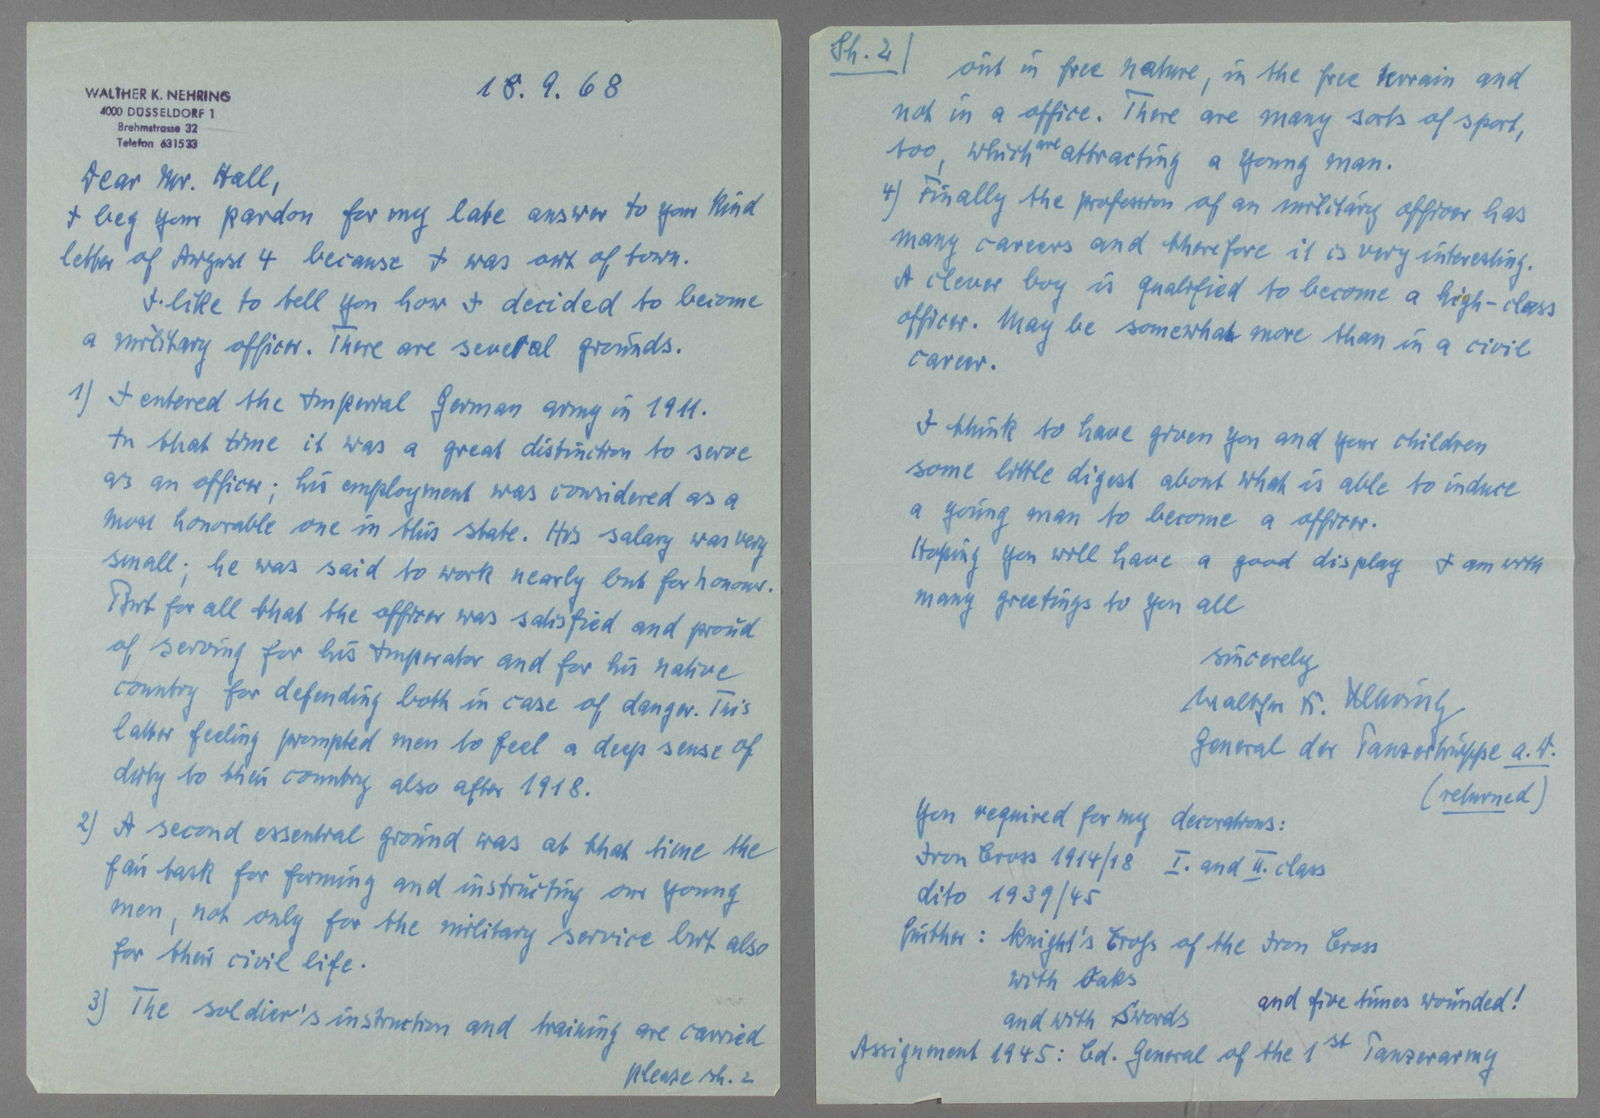 WALTHER K. NEHRING
4000 DÜSSELDORF 1
Brehmstrasse 32
Telefon 631533
18. 9. 68
Dear Mr. Hall,
I beg your pardon for my late answer to your kind
letter of August 4 because I was out of town.
I like to tell you how I decided to become
a military officer. There are several grounds.
1) I entered the Imperial German army in 1911.
In that time it was a great distinction to serve
as an officer; his employment was considered as a
most honorable one in this state. His salary was very
small; he was said to work nearly but for honour.
But for all that the officer was satisfied and proud
of serving for his Imperator and for his native
country for defending both in case of danger. This
latter feeling prompted men to feel a deep sense of
duty to their country also after 1918.
2) A second essential ground was at that time the
fair task for forming and instructing our young
men, not only for the military service but also
for their civil life.
3) The soldier's instruction and training are carried
please sh. 2
Sh. 2
out in free nature, in the free terrain and
not in a office. There are many sorts of sport,
too, which are attracting a young man.
4) Finally the profession of an military officer has
many careers and therefore it is very interesting.
A clever boy is qualified to become a high-class
officer. May be somewhat more than in a civil
career.
I think to have given you and your children
some little digest about what is able to induce
a going man to become a officer.
Hoping you will have a good display I am with
many greetings to you all
sincerely
Walther K. Nehring
General der Panzertruppe a. D.
(returned)
You required for my decorations:
Iron Cross 1914/18 I. and II. class
dito 1939/45
further: Knight's Cross of the Iron Cross
with Oaks
and with Swords and five times wounded!
Assignment 1945: Cd. General of the 1st Panzerarmy